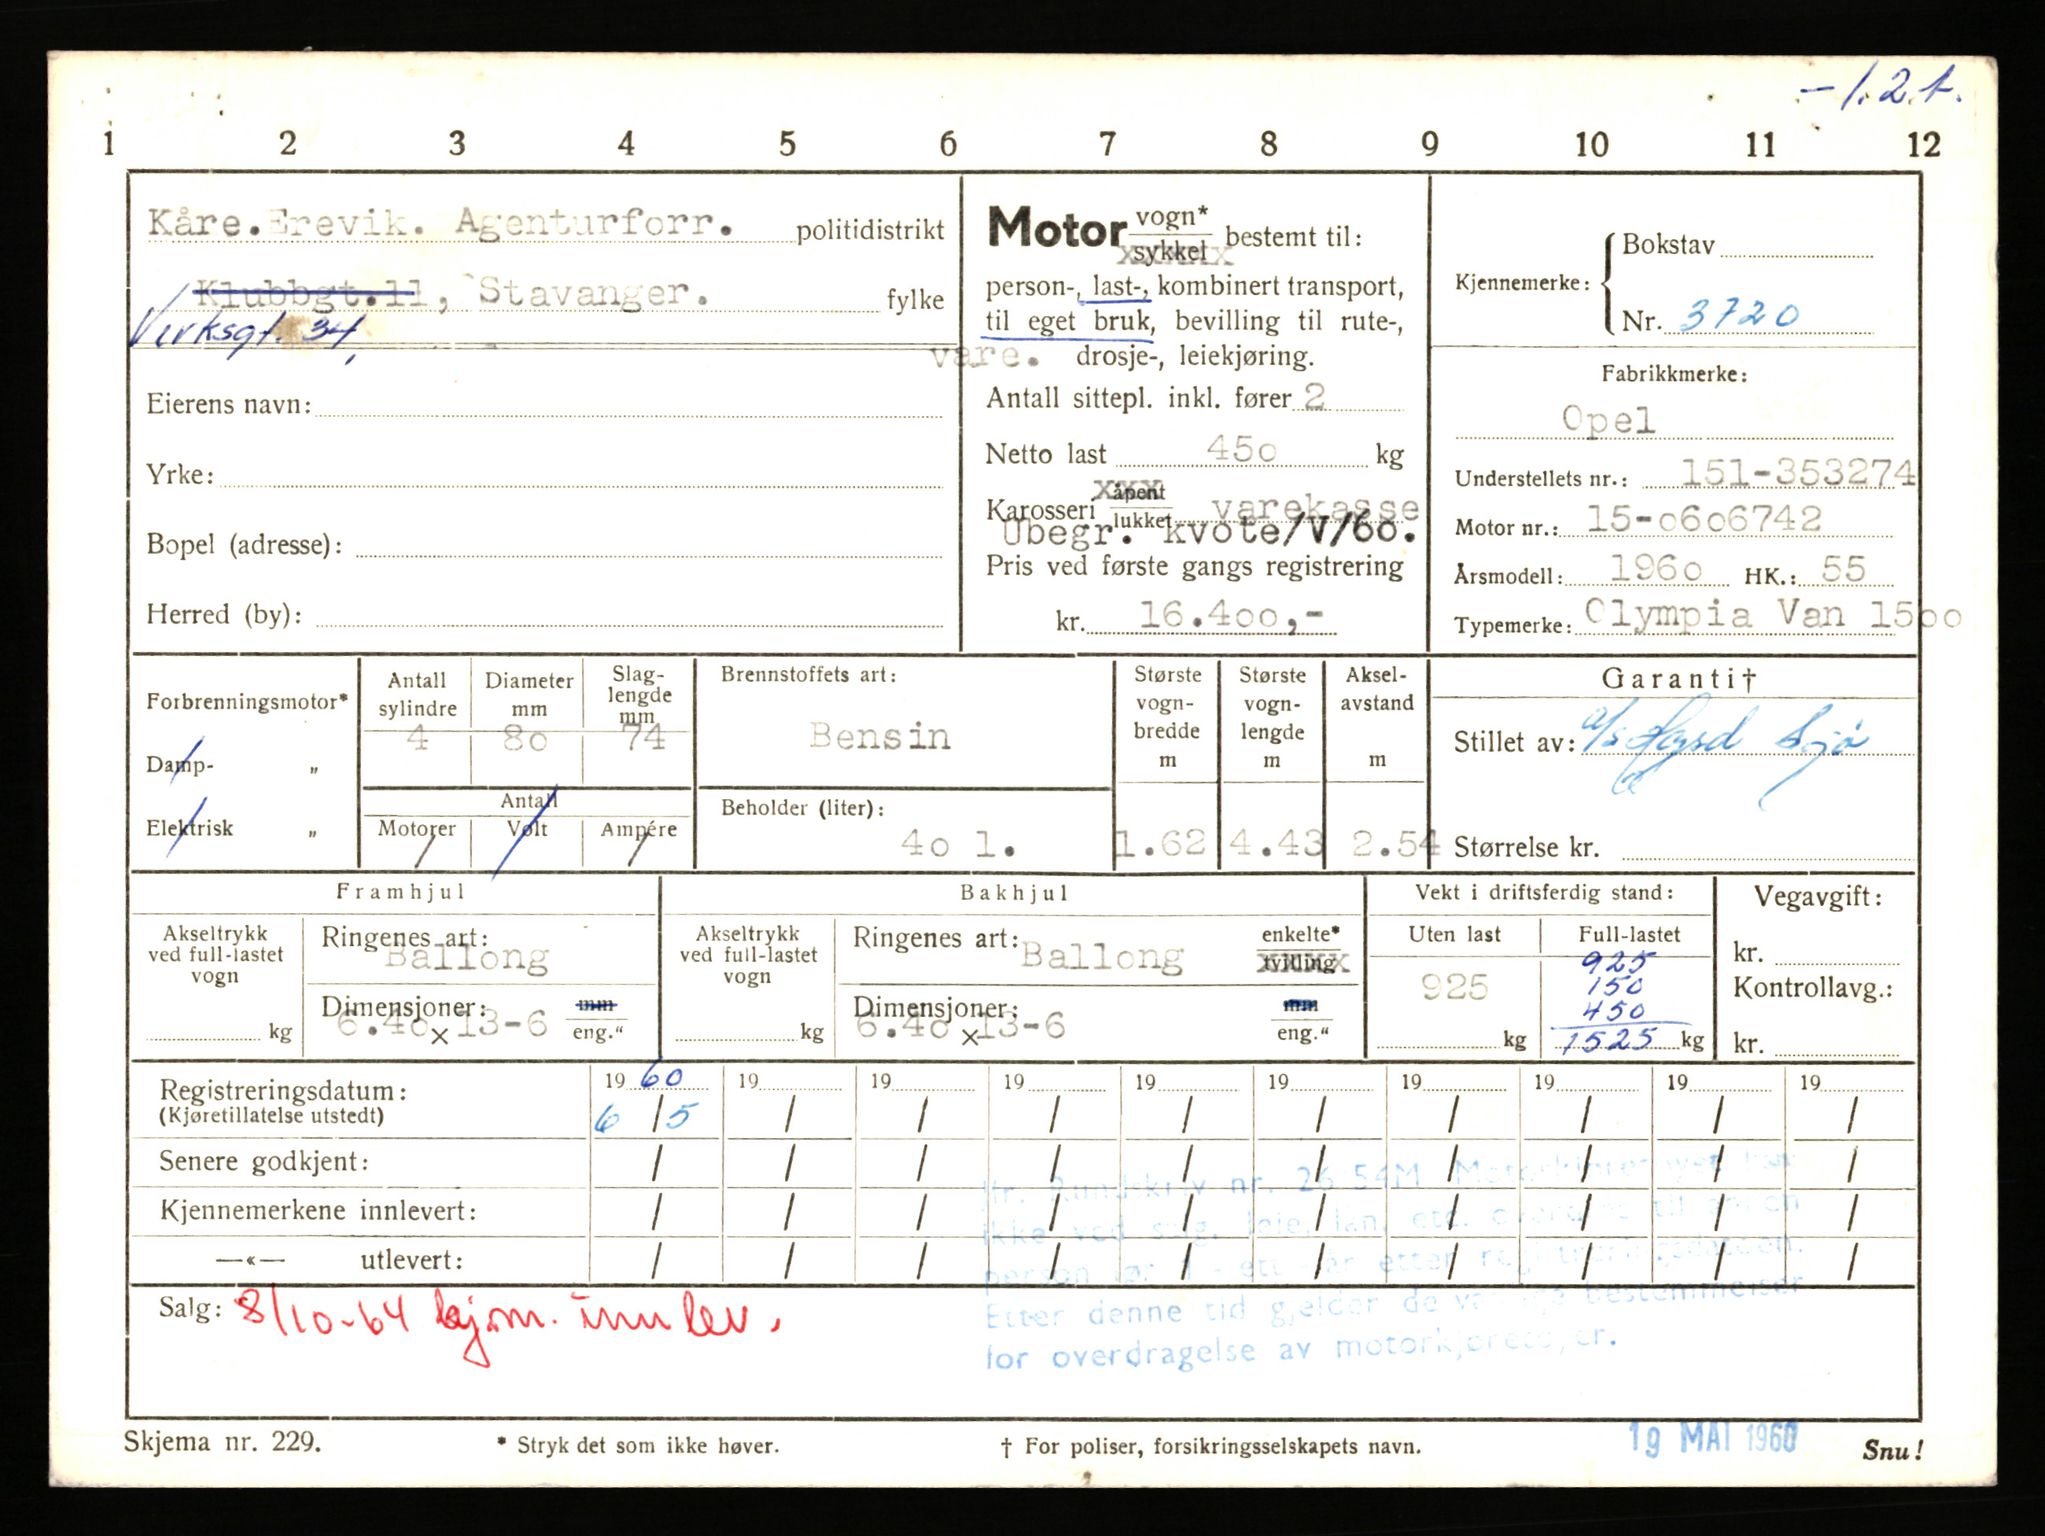 -1.2 t.
1 2 3 4 5 6 7 8 9 10 11 12
Kåre.Erevik. Agenturforr. politidistrikt
Klubbgt.11, Stavanger. fylke
Verksgt. 34,
Eierens navn:
Yrke:
Bopel (adresse):
Herred (by):
Motor vogn* sykkel bestemt til:
person-, last-, kombinert transport,
til eget bruk, bevilling til rute-,
vare. drosje-, leiekjøring.
Antall sittepl. inkl. fører 2
Netto last 450 kg
Karosseri åpent lukket varekasse
Ubegr. kvote/V/60.
Pris ved første gangs registrering
kr. 16.400,-
Kjennemerke: Bokstav
Nr. 3720
Fabrikkmerke:
Opel
Understellets nr.: 151-353274
Motor nr.: 15-0606742
Årsmodell: 1960 HK.: 55
Typemerke: Olympia Van 1500
Forbrenningsmotor*
Damp- „
Elektrisk „
Antall sylindre
4
Diameter mm
80
Slag-lengde mm
74
Antall
Motorer Volt Ampére
Brennstoffets art:
Bensin
Beholder (liter):
40 l.
Største vogn-bredde m
1.62
Største vogn-lengde m
4.43
Aksel-avstand m
2.54
Garanti†
Stillet av: a/s
Størrelse kr.
Framhjul
Akseltrykk ved full-lastet vogn
kg
Ringenes art:
Ballong
Dimensjoner: mm
6.40 x 13-6 eng."
Bakhjul
Akseltrykk ved full-lastet vogn
kg
Ringenes art: enkelte*
Ballong tvilling
Dimensjoner: mm
6.40 x 13-6 eng."
Vekt i driftsferdig stand:
Uten last
925
kg
Full-lastet
925
150
450
1525 kg
Vegavgift:
kr.
Kontrollavg.:
kr.
Registreringsdatum: 1960 19 19 19 19 19 19 19 19 19
(Kjøretillatelse utstedt) 6/5 / / / / / / / / /
Senere godkjent: / / / / / / / / / /
Kjennemerkene innlevert: / / / / / / / / / /
—«— utlevert: / / / / / / / / / /
Jfr. Rundskriv nr. 26 54M
ikke ved salg, leie, lån, etc. til annen
person før 1 - ett - år etter registreringsdatoen.
Etter denne tid gjelder de vanlige bestemmelser
for overdragelse av motorkjøretøyer.
Salg: 8/10-64 kjm. innlev.
Skjema nr. 229.
* Stryk det som ikke høver.
† For poliser, forsikringsselskapets navn.
19 MAI 1960
Snu!